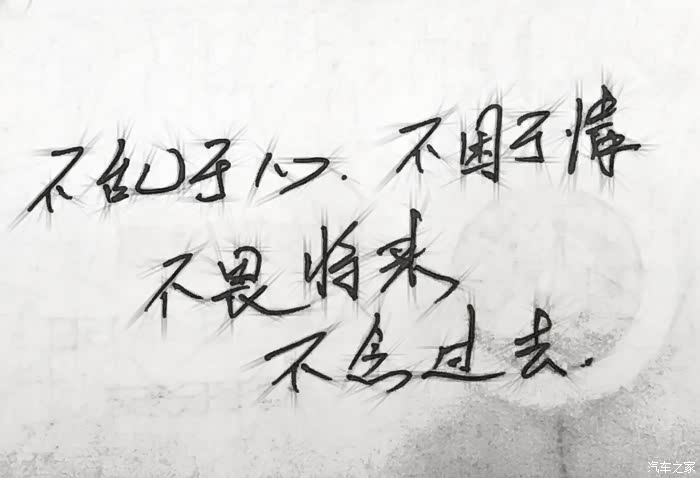 不乱于心.不困于情
不畏将来
不念过去.
汽车之家